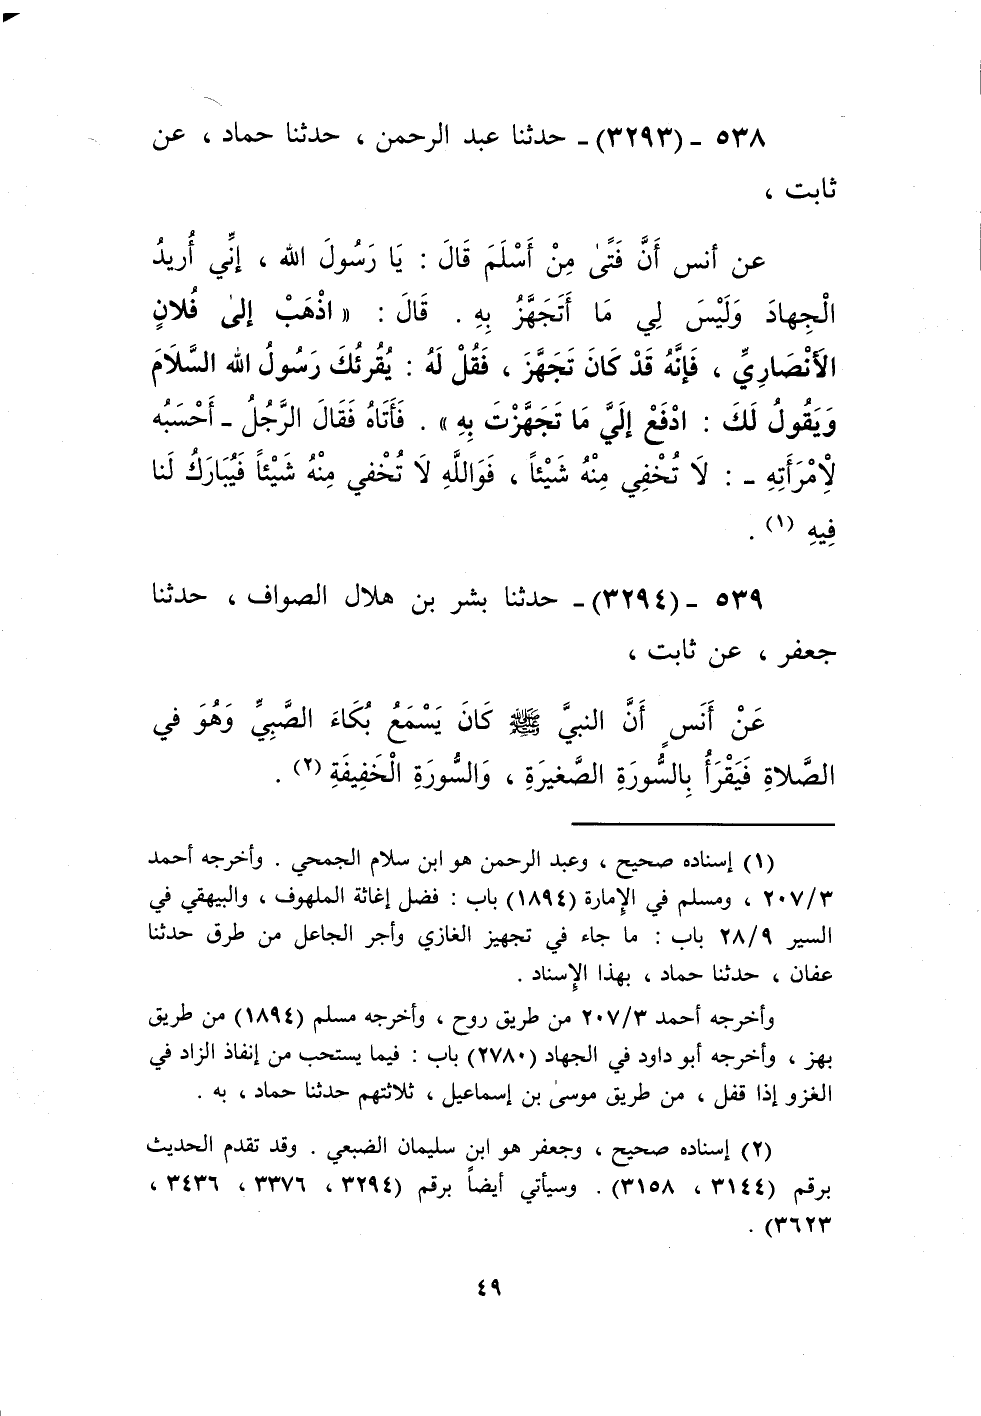 ٥٣٨ ـ (٣٢٩٣) ـ حدثنا عبد الرحمن ، حدثنا حماد ، عن
ثابت ،
عن أنس أَنَّ فَتًى مِنْ أَسْلَمَ قَالَ : يَا رَسُولَ الله ، إِنِّي أُرِيدُ
الْجِهادَ وَلَيْسَ لِي مَا أَتَجَهَّزُ بِهِ . قَالَ : « اذْهَبْ إلىٰ فُلانٍ
الأَنْصَارِيِّ ، فَإِنَّهُ قَدْ كَانَ تَجَهَّزَ ، فَقُلْ لَهُ : يُقْرِئُكَ رَسُولُ الله السَّلَامَ
وَيَقُولُ لَكَ : ادْفَعْ إِلَيَّ مَا تَجَهَّزْتَ بِهِ » . فَأَتَاهُ فَقَالَ الرَّجُلُ ـ أَحْسَبُه
لِامْرَأَتِهِ ـ : لَا تُخْفِي مِنْهُ شَيْئاً ، فَوَاللَّهِ لَا تُخْفي مِنْهُ شَيْئاً فَيُبَارَكُ لَنا
فِيهِ (١) .
٥٣٩ ـ (٣٢٩٤) ـ حدثنا بشر بن هلال الصواف ، حدثنا
جعفر ، عن ثابت ،
عَنْ أَنَسٍ أَنَّ النبيَّ ﷺ كَانَ يَسْمَعُ بُكَاءَ الصَّبِيِّ وَهُوَ في
الصَّلاةِ فَيَقْرَأُ بِالسُّورَةِ الصَّغيرَةِ ، وَالسُّورَةِ الْخَفِيفَةِ (٢) .
(١) إسناده صحيح ، وعبد الرحمن هو ابن سلام الجمحي . وأخرجه أحمد
٢٠٧/٣ ، ومسلم في الإمارة (١٨٩٤) باب : فضل إغاثة الملهوف ، والبيهقي في
السير ٢٨/٩ باب : ما جاء في تجهيز الغازي وأجر الجاعل من طرق حدثنا
عفان ، حدثنا حماد ، بهذا الإسناد .
وأخرجه أحمد ٢٠٧/٣ من طريق روح ، وأخرجه مسلم (١٨٩٤) من طريق
بهز ، وأخرجه أبو داود في الجهاد (٢٧٨٠) باب : فيما يستحب من إنفاذ الزاد في
الغزو إذا قفل ، من طريق موسىٰ بن إسماعيل ، ثلاثتهم حدثنا حماد ، به .
(٢) إسناده صحيح ، وجعفر هو ابن سليمان الضبعي . وقد تقدم الحديث
برقم (٣١٤٤ ، ٣١٥٨) . وسيأتي أيضاً برقم (٣٢٩٤ ، ٣٣٧٦ ، ٣٤٣٦ ،
٣٦٢٣) .
٤٩